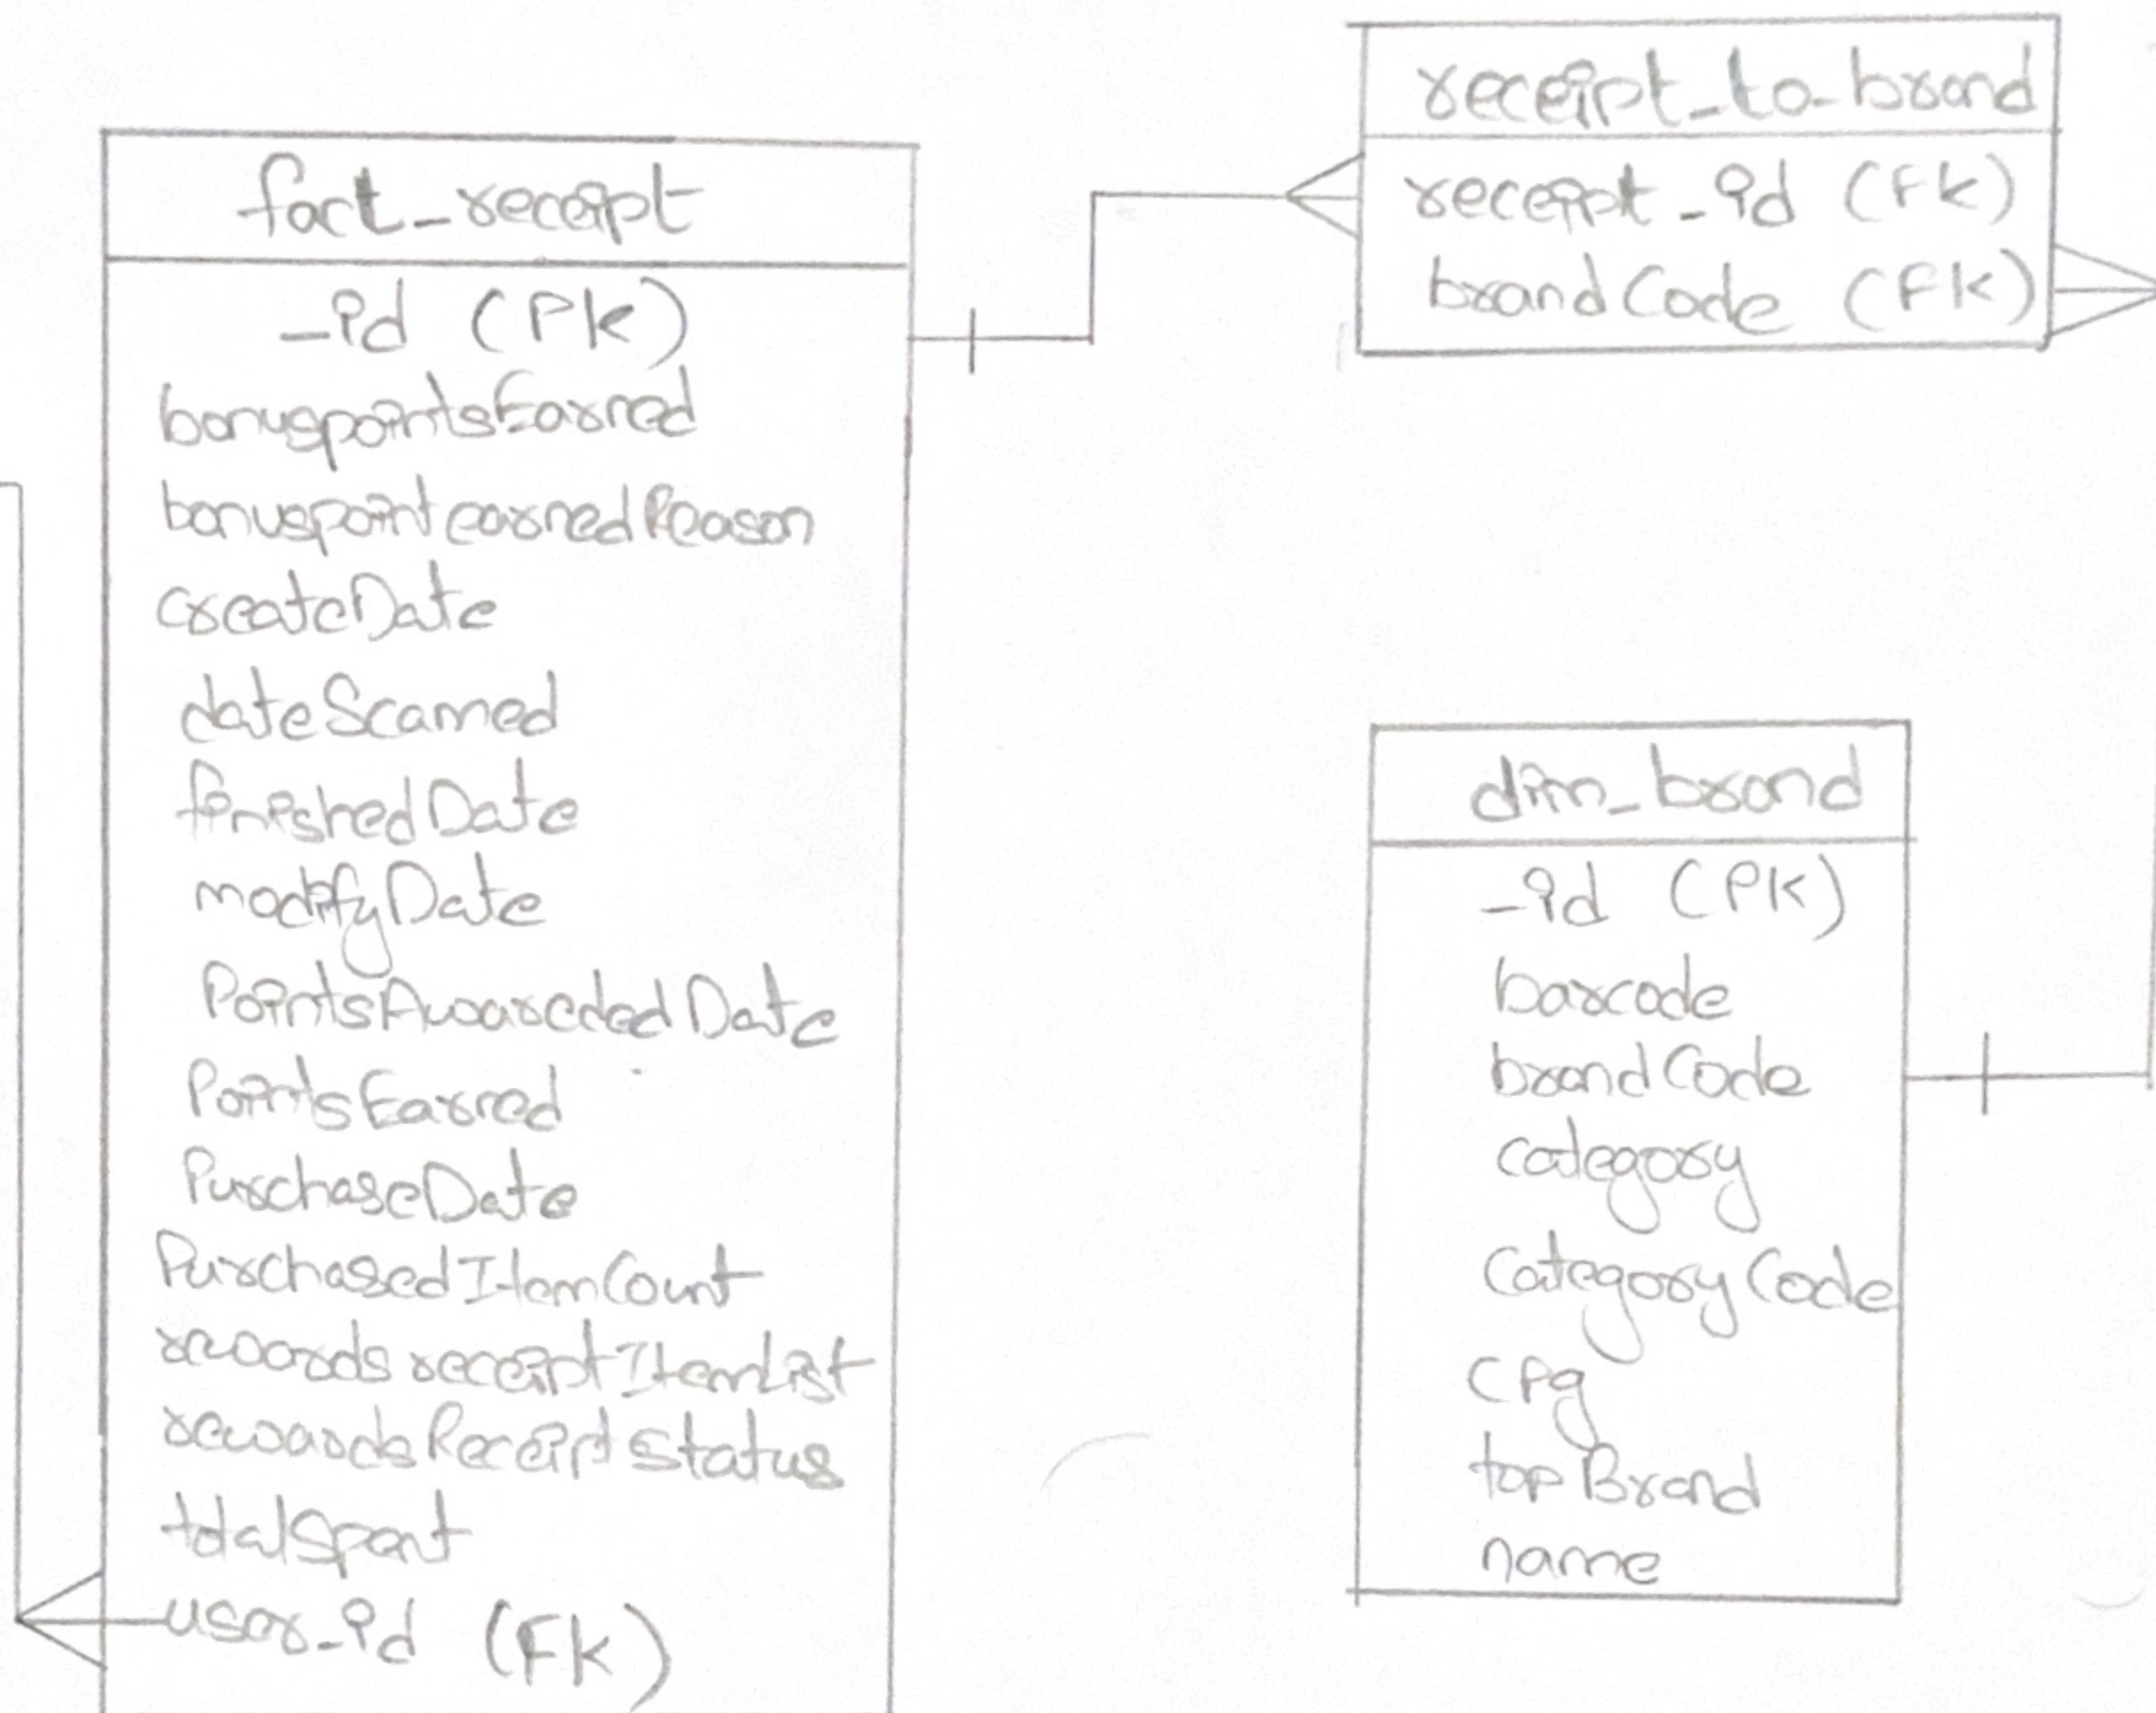 fact_receipt
_id (PK)
bonuspointsEarned
bonuspointearnedReason
createDate
dateScanned
finishedDate
modifyDate
PointsAwareded Date
PointsEarned
PurchaseDate
PurchasedItemCount
rewards receiptItemList
rewardsReceiptStatus
totalSpent
user_id (FK)
receipt_to_brand
receipt_id (FK)
brandCode (FK)
dim_brand
_id (PK)
barcode
brandCode
category
CategoryCode
cpg
topBrand
name